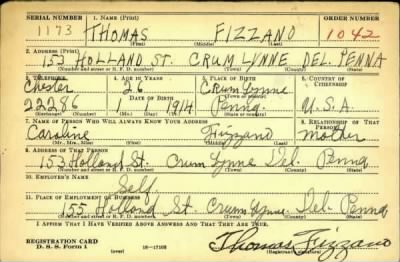 SERIAL NUMBER 1. NAME (Print) ORDER NUMBER
1173 THOMAS FIZZANO 1042
(First) (Middle) (Last)
2. ADDRESS (Print)
153 HOLLAND ST. CRUM LYNNE DEL. PENNA
(Number and street or R. F. D. number) (Town) (County) (State)
3. TELEPHONE 4. AGE IN YEARS 5. PLACE OF BIRTH 6. COUNTRY OF CITIZENSHIP
Chester 26 Crum Lynne
DATE OF BIRTH
22286 1 1 1914 Penna. U.S.A.
7. NAME OF PERSON WHO WILL ALWAYS KNOW YOUR ADDRESS 8. RELATIONSHIP OF THAT PERSON
Caroline Fizzano mother
(Mr., Mrs., Miss) (First) (Middle) (Last)
9. ADDRESS OF THAT PERSON
153 Holland St. Crum Lynne Del. Penna
(Number and street or R. F. D. number) (Town) (County) (State)
10. EMPLOYER'S NAME
Self.
11. PLACE OF EMPLOYMENT OR BUSINESS
155 Holland St. Crum Lynne Del. Penna
(Number and street or R. F. D. number) (Town) (County) (State)
I AFFIRM THAT I HAVE VERIFIED ABOVE ANSWERS AND THAT THEY ARE TRUE.
REGISTRATION CARD
D. S. S. Form 1 (over) 16—17105
Thomas Fizzano
(Registrant's signature)